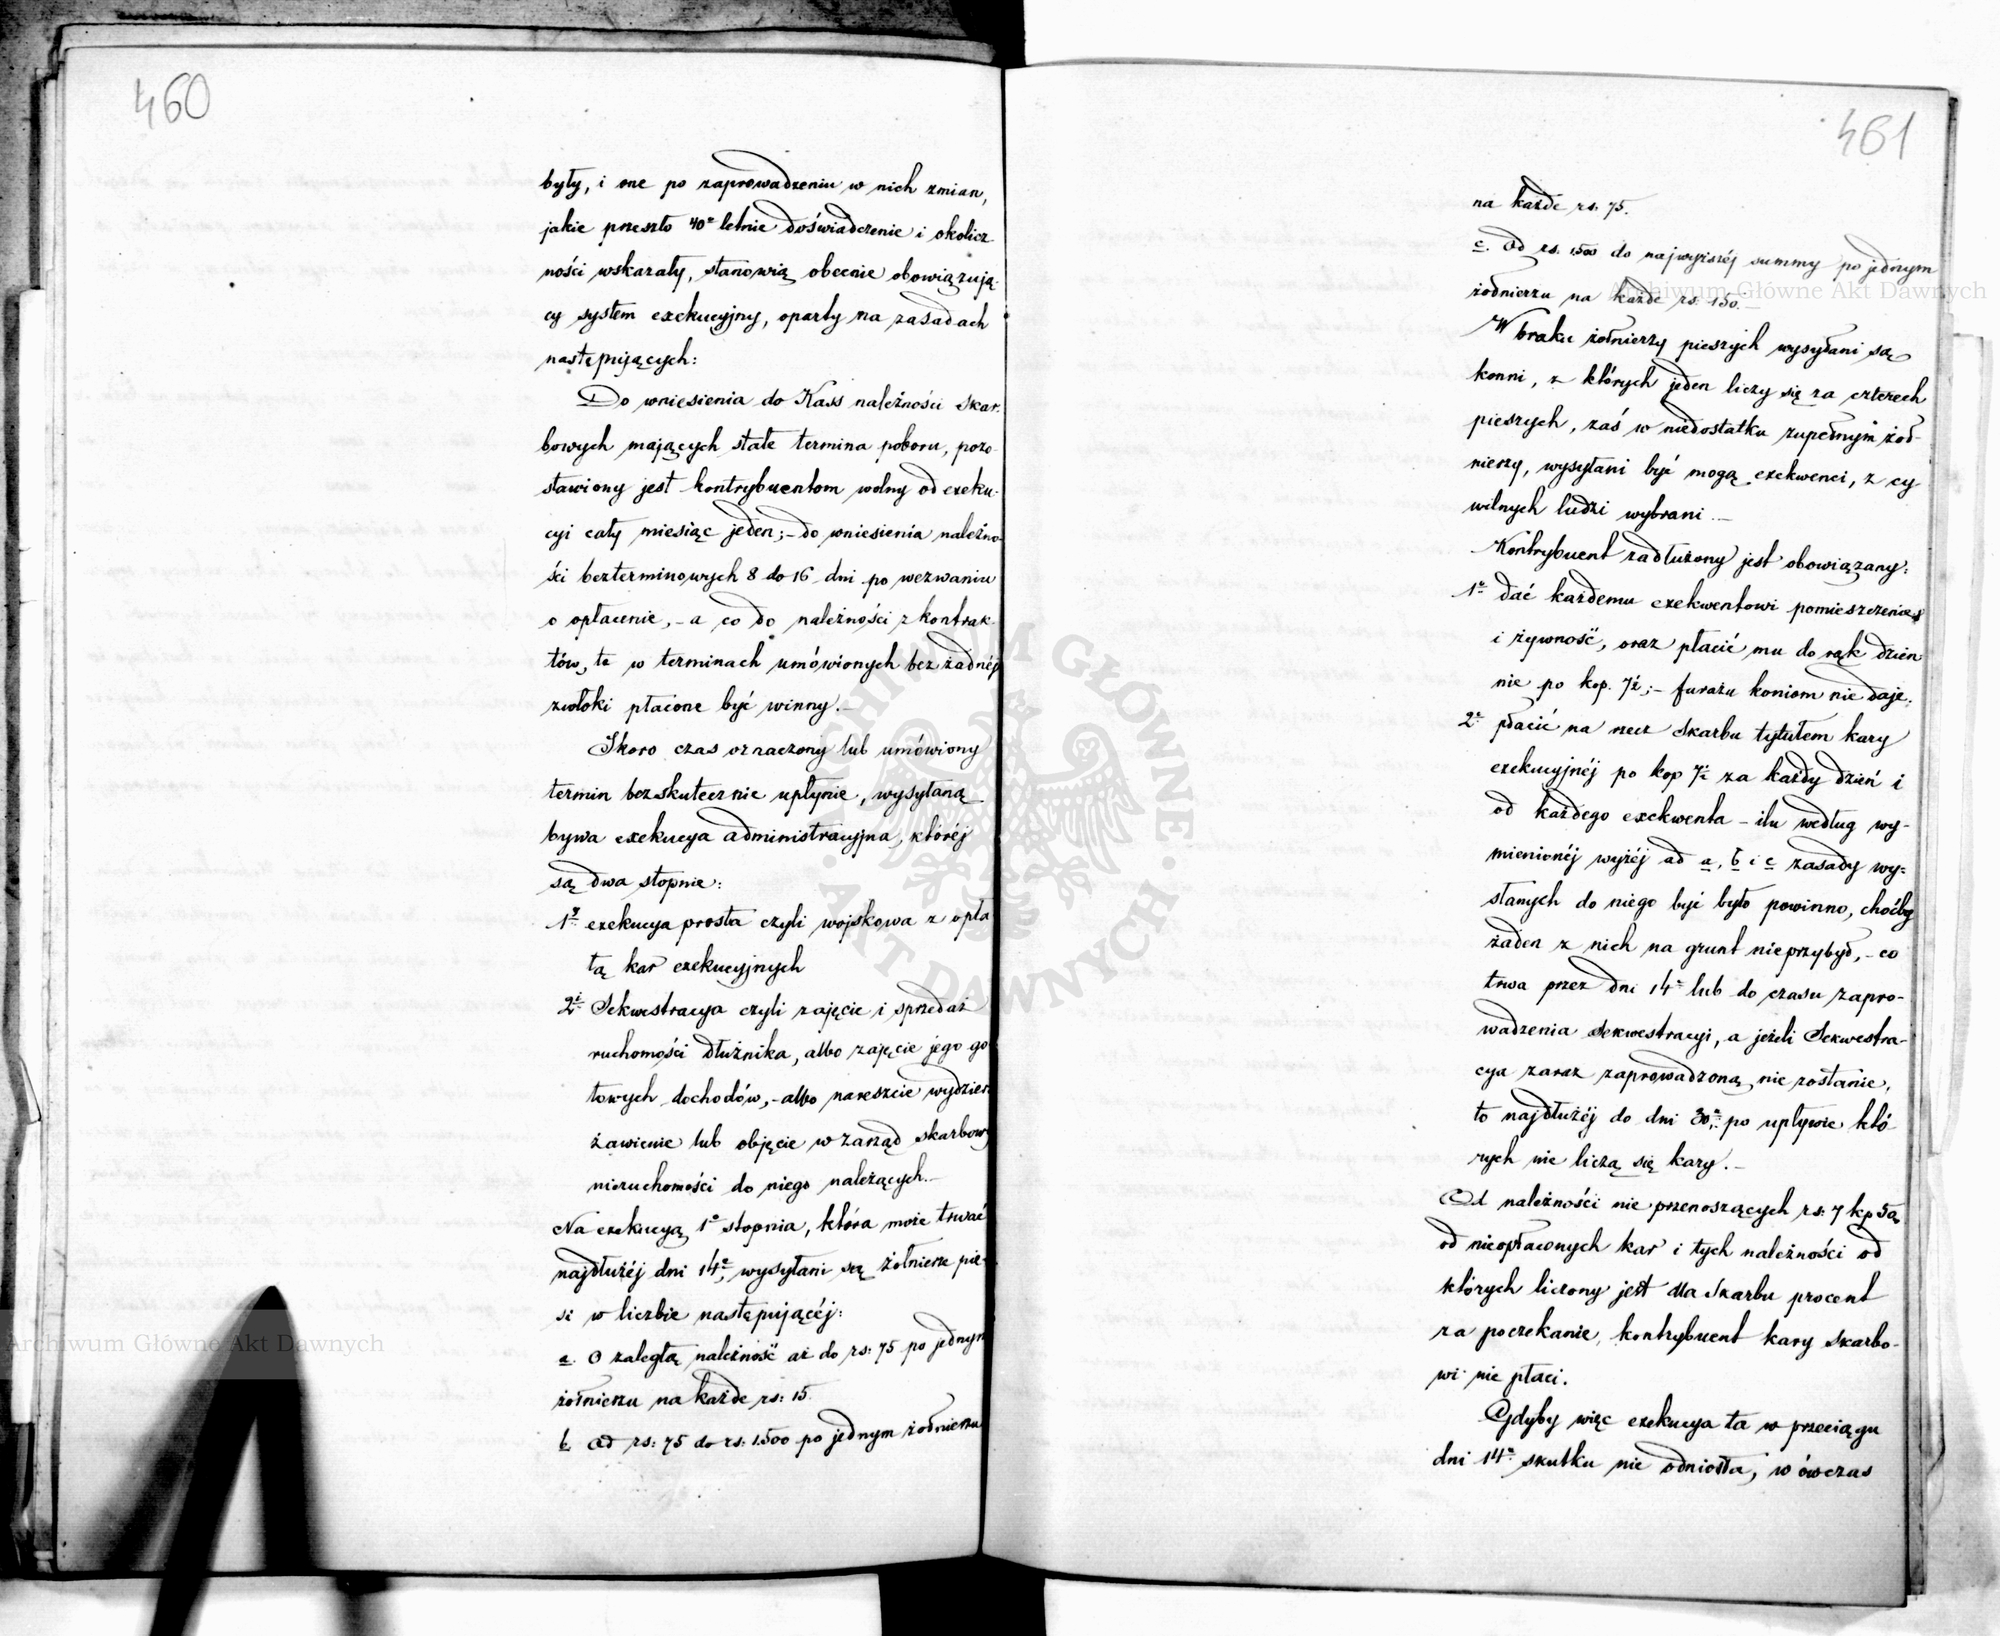 460
były, i one po zaprowadzeniu w nich zmian,
jakie przeszło 40º letnie doświadczenie i okolicz
ności wskazały, stanowią obecnie obowiązują-
cy system exekucyjny, oparty na zasadach
następujących:
Do wniesienia do Kass należności skar-
bowych mających stałe termina poboru, pozo-
stawiony jest kontrybuentom wolny od exeku-
cyi cały miesiąc jeden; – do wniesienia należno-
ści bezterminowych 8 do 16 dni po wezwaniu
o opłacenie, – a co do należności z kontrak-
tów, te w terminach umówionych bez żadnéj
zwłoki płacone być winny. –
Skoro czas oznaczony lub umówiony
termin bezskutecznie upłynie, wysyłaną
bywa exekucya administracyjna, któréj
są dwa stopnie:
1º exekucya prosta czyli wojskowa z opła
tą kar exekucyjnych
2º Sekwestracya czyli zajęcie i sprzedaż
ruchomości dłużnika, albo zajęcie jego go
towych dochodów, – albo nareszcie wydzier
żawienie lub objęcie w zarząd skarbowy
nieruchomości do niego należących. –
Na exekucyą 1º stopnia, która może trwać
najdłużéj dni 14º, wysyłani są żołnierze pie-
si w liczbie następującéj:
a. O zaległą należność aż do rs: 75 po jednym
żołnierzu na każde rs: 15.
b. Od rs: 75 do rs: 1.500 po jednym żołnierzu
461
na każde rs: 75.
c. Od rs. 1500 do najwyższéj summy po jednym
żołnierzu na każde rs: 150. –
W braku żołnierzy pieszych wysyłani są
konni, z których jeden liczy się za czterech
pieszych, zaś w niedostatku zupełnym żoł-
nierzy, wysyłani być mogą exekwenci, z cy
wilnych ludzi wybrani –
Kontrybuent zadłużony jest obowiązany:
1º dać każdemu exekwentowi pomieszczenie
i żywność, oraz płacić mu do rąk dzien
nie po kop. 7½; – furażu koniom nie daje.
2º płacić na rzecz Skarbu tytułem kary
exekucyjnéj po kop 7½ za każdy dzień i
od każdego exekwenta – ilu według wy-
mienionéj wyżéj ad a, b i c zasady wy-
słanych do niego być było powinno, choćby
żaden z nich na grunt nieprzybył, – co
trwa przez dni 14º lub do czasu zapro-
wadzenia Sekwestracyi, a jeżeli Sekwestra-
cya zaraz zaprowadzoną nie zostanie,
to najdłużéj do dni 30º, po upływie któ-
rych nie liczą się kary. –
Od należności nie przenoszących rs: 7 kp 50,
od nieopłaconych kar i tych należności od
których liczony jest dla Skarbu procent
za poczekanie, kontrybuent kary Skarbo-
wi nie płaci.
Gdyby więc exekucya ta w przeciągu
dni 14º skutku nie odniosła, w ówczas
Archiwum Główne Akt Dawnych
Archiwum Główne Akt Dawnych
ARCHIWUM GŁÓWNE
· AKT DAWNYCH ·